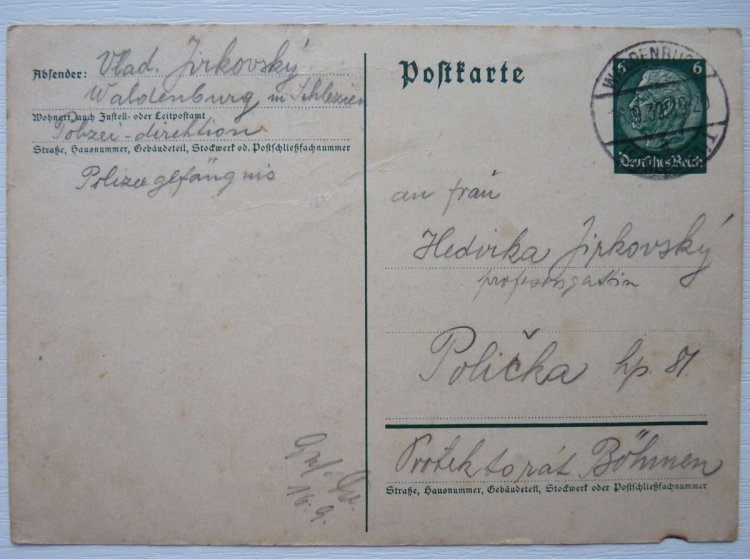 Absender: Vlad. Jirkovský
Waldenburg in Schlezien
Wohnort, auch Zustell- oder Leitpostamt
Polizei-direktion
Straße, Hausnummer, Gebäudeteil, Stockwerk od. Postschließfachnummer
Polizeigefängnis
Postkarte
6 6
Deutsches Reich
an frau
Hedvika Jirkovský
profesorsgattin
Polička hp. 81.
Protektorát Böhmen
Straße, Hausnummer, Gebäudeteil, Stockwerk oder Postschließfachnummer
16. 9.